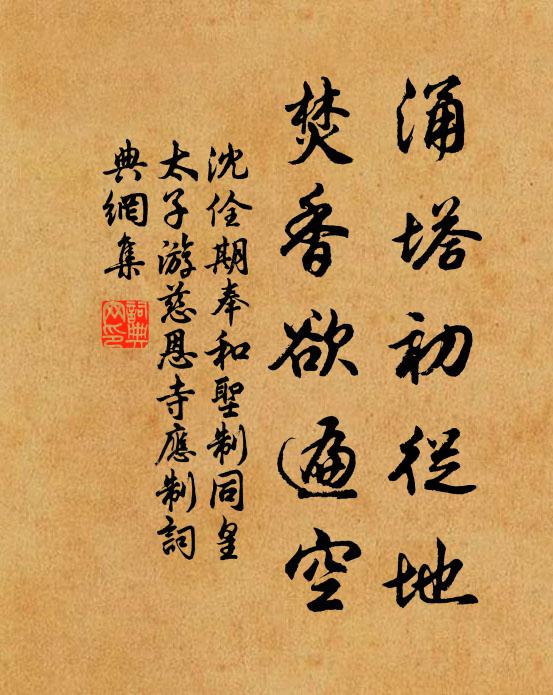 涌塔初從地
焚香欲遍空
沈佺期奉和聖制同皇
太子游慈恩寺應制詞
典網集
詞典
网印